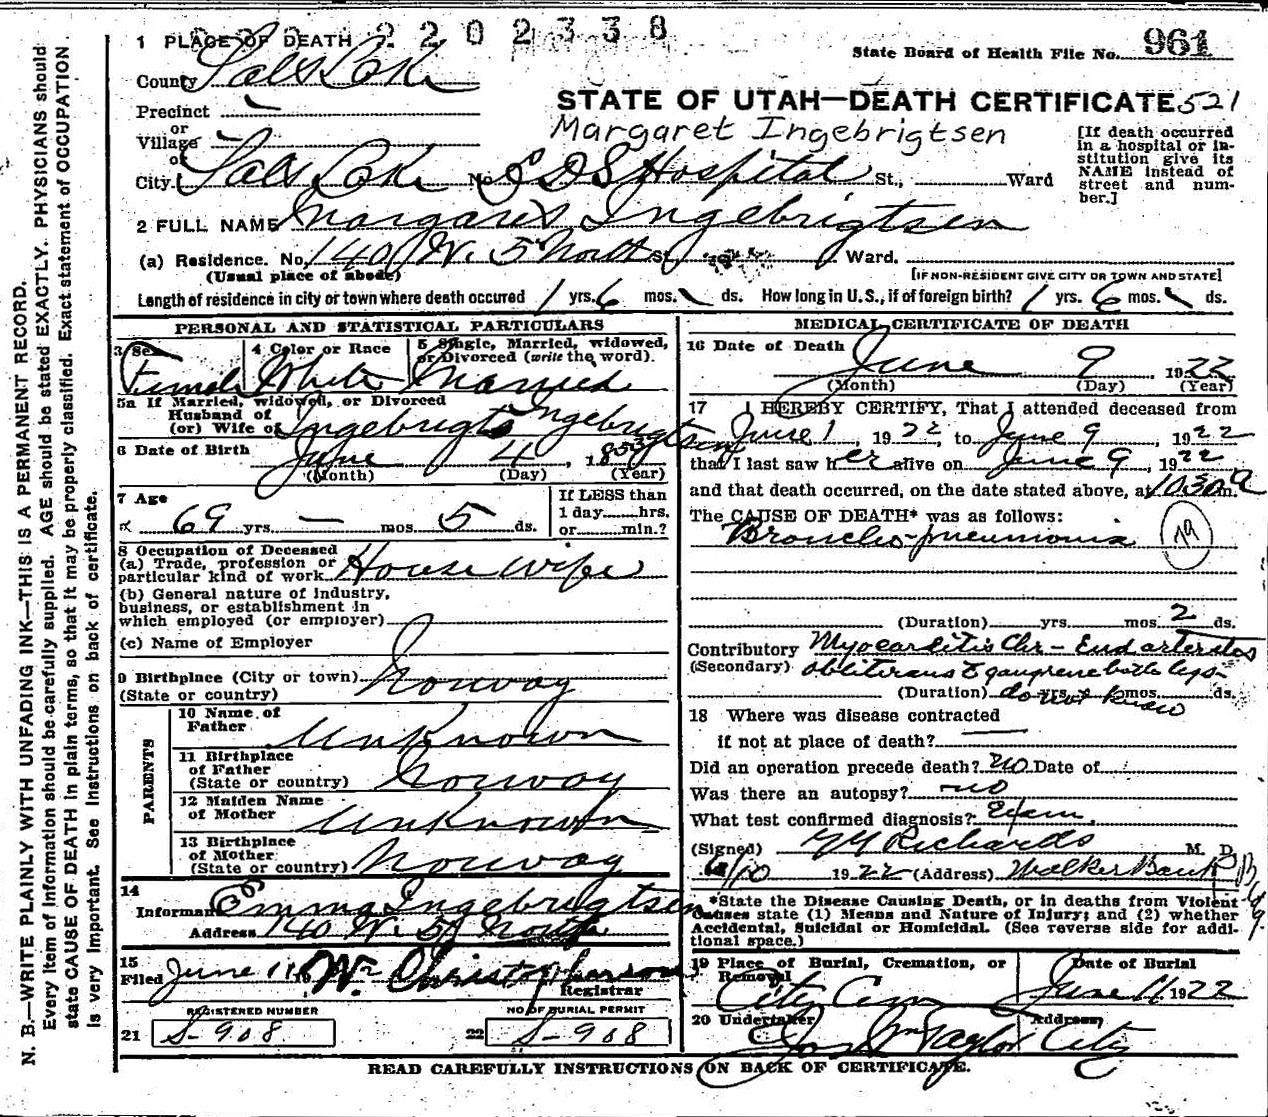 N. B.—WRITE PLAINLY WITH UNFADING INK—THIS IS A PERMANENT RECORD.
Every item of information should be carefully supplied. AGE should be stated EXACTLY. PHYSICIANS should
state CAUSE OF DEATH in plain terms, so that it may be properly classified. Exact statement of OCCUPATION
is very important. See Instructions on back of certificate.
2202338
1 PLACE OF DEATH
State Board of Health File No. 961
County Salt Lake
STATE OF UTAH—DEATH CERTIFICATE 521
Precinct —
or
Village —
or
Margaret Ingebrigtsen
[If death occurred
in a hospital or in-
stitution give its
NAME instead of
street and num-
ber.]
City Salt Lake No. L D S Hospital St., Ward
2 FULL NAME Margaret Ingebrigtsen
(a) Residence. No. 140 W. 5 North St. Ward.
(Usual place of abode) [IF NON-RESIDENT GIVE CITY OR TOWN AND STATE]
Length of residence in city or town where death occured 1 yrs. 6 mos. ds. How long in U. S., if of foreign birth? 1 yrs. 6 mos. ds.
PERSONAL AND STATISTICAL PARTICULARS
3 Sex 4 Color or Race 5 Single, Married, widowed,
or Divorced (write the word).
Female White Married
5a If Married, widowed, or Divorced
Husband of
(or) Wife of Ingebrigt Ingebrigtsen
6 Date of Birth June 4, 1853
(Month) (Day) (Year)
7 Age If LESS than
1 day hrs.
69 yrs. — mos. 5 ds. or min.?
8 Occupation of Deceased
(a) Trade, profession or
particular kind of work House wife
(b) General nature of industry,
business, or establishment in
which employed (or employer)
(c) Name of Employer
9 Birthplace (City or town) Norway
(State or country)
PARENTS
10 Name of
Father Unknown
11 Birthplace
of Father
(State or country) Norway
12 Maiden Name
of Mother Unknown
13 Birthplace
of Mother
(State or country) Norway
14
Informant Emma Ingebrigtsen
Address 140 W. 5 North
15
Filed June 11 Wm Christopherson
Registrar
REGISTERED NUMBER NO. OF BURIAL PERMIT
21 S-908 22 S-908
MEDICAL CERTIFICATE OF DEATH
16 Date of Death June 9 1922
(Month) (Day) (Year)
17 I HEREBY CERTIFY, That I attended deceased from
June 1, 1922, to June 9, 1922
that I last saw her alive on June 9, 1922
and that death occurred, on the date stated above, at 1030 a m.
The CAUSE OF DEATH* was as follows:
Broncho-pneumonia
(Duration) yrs. mos. 2 ds.
Contributory Myocarditis Chr - Endarteritis
(Secondary) obliterans & gangrene both legs-
(Duration) do not know yrs. mos. ds.
18 Where was disease contracted
if not at place of death? —
Did an operation precede death? no Date of
Was there an autopsy? no
What test confirmed diagnosis? Exam.
(Signed) Richards M. D.
6/10 1922 (Address) Walker Bank Bldg.
*State the Disease Causing Death, or in deaths from Violent
Causes state (1) Means and Nature of Injury; and (2) whether
Accidental, Suicidal or Homicidal. (See reverse side for addi-
tional space.)
19 Place of Burial, Cremation, or Date of Burial
Removal
City Cem June 11 1922
20 Undertaker Address
Jos Wm Taylor City
READ CAREFULLY INSTRUCTIONS ON BACK OF CERTIFICATE.